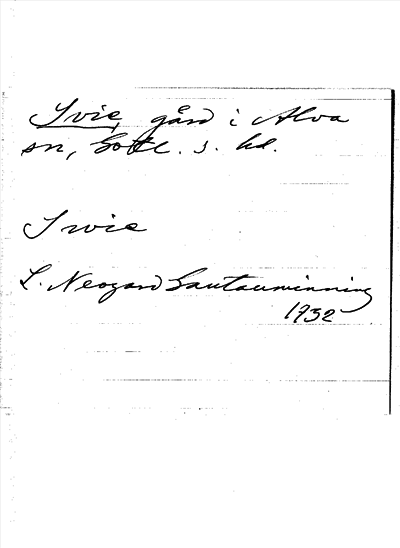 Ivie, gård i Alva
sn, Gotl. s. hd.
Iwie
L. Neogard Gautauminning
1732